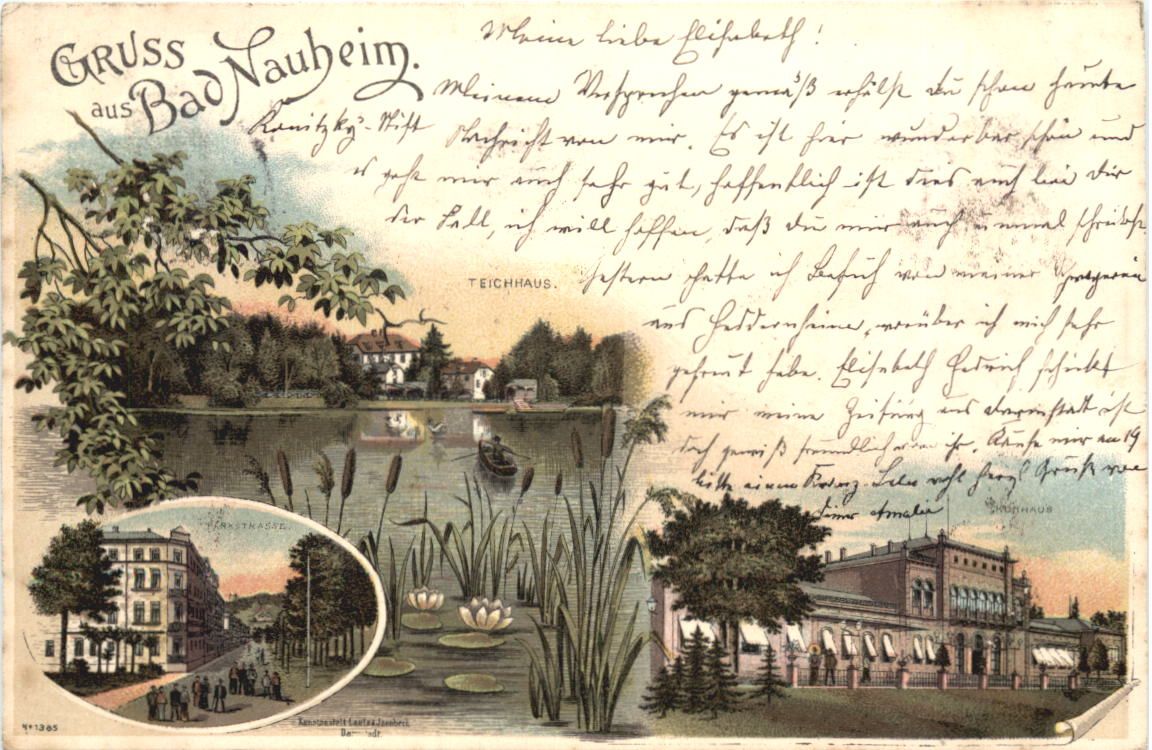 GRUSS
aus Bad Nauheim.
Meine liebe Elisabeth!
Meinem Versprechen gemäß erhälst Du schon heute
Konitzky-Stift Nachricht von mir. Es ist hier wunderbar schön und
es geht mir auch sehr gut, hoffentlich ist dies auch bei Dir
der Fall, ich will hoffen, daß Du mir auch einmal schreibst
TEICHHAUS.
Gestern hatte ich Besuch von meiner
aus Heddernheim, worüber ich mich sehr
gefreut habe. Elisabeth schickt
mir meine Zeitung aus Darmstadt ist
doch gewiß freundlich von ihr.
bitte einen Lebe wohl herzl. Grüße von
Deiner Amalie
KURHAUS
PARKSTRASSE.
Kunstanstalt Lautz & Isenbeck
Darmstadt.
No 1385